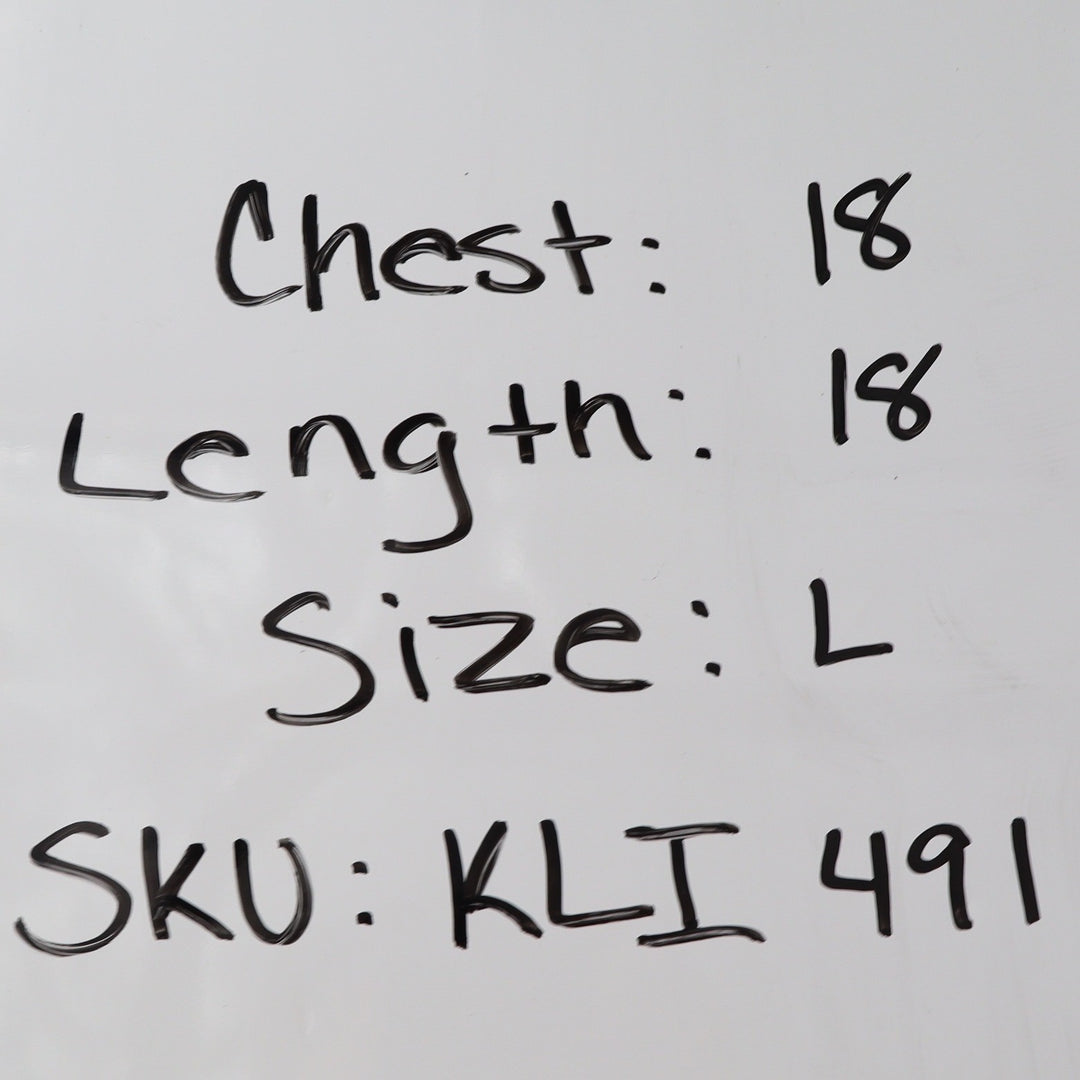 Chest: 18
Length: 18
Size: L
SKU: KLI 491